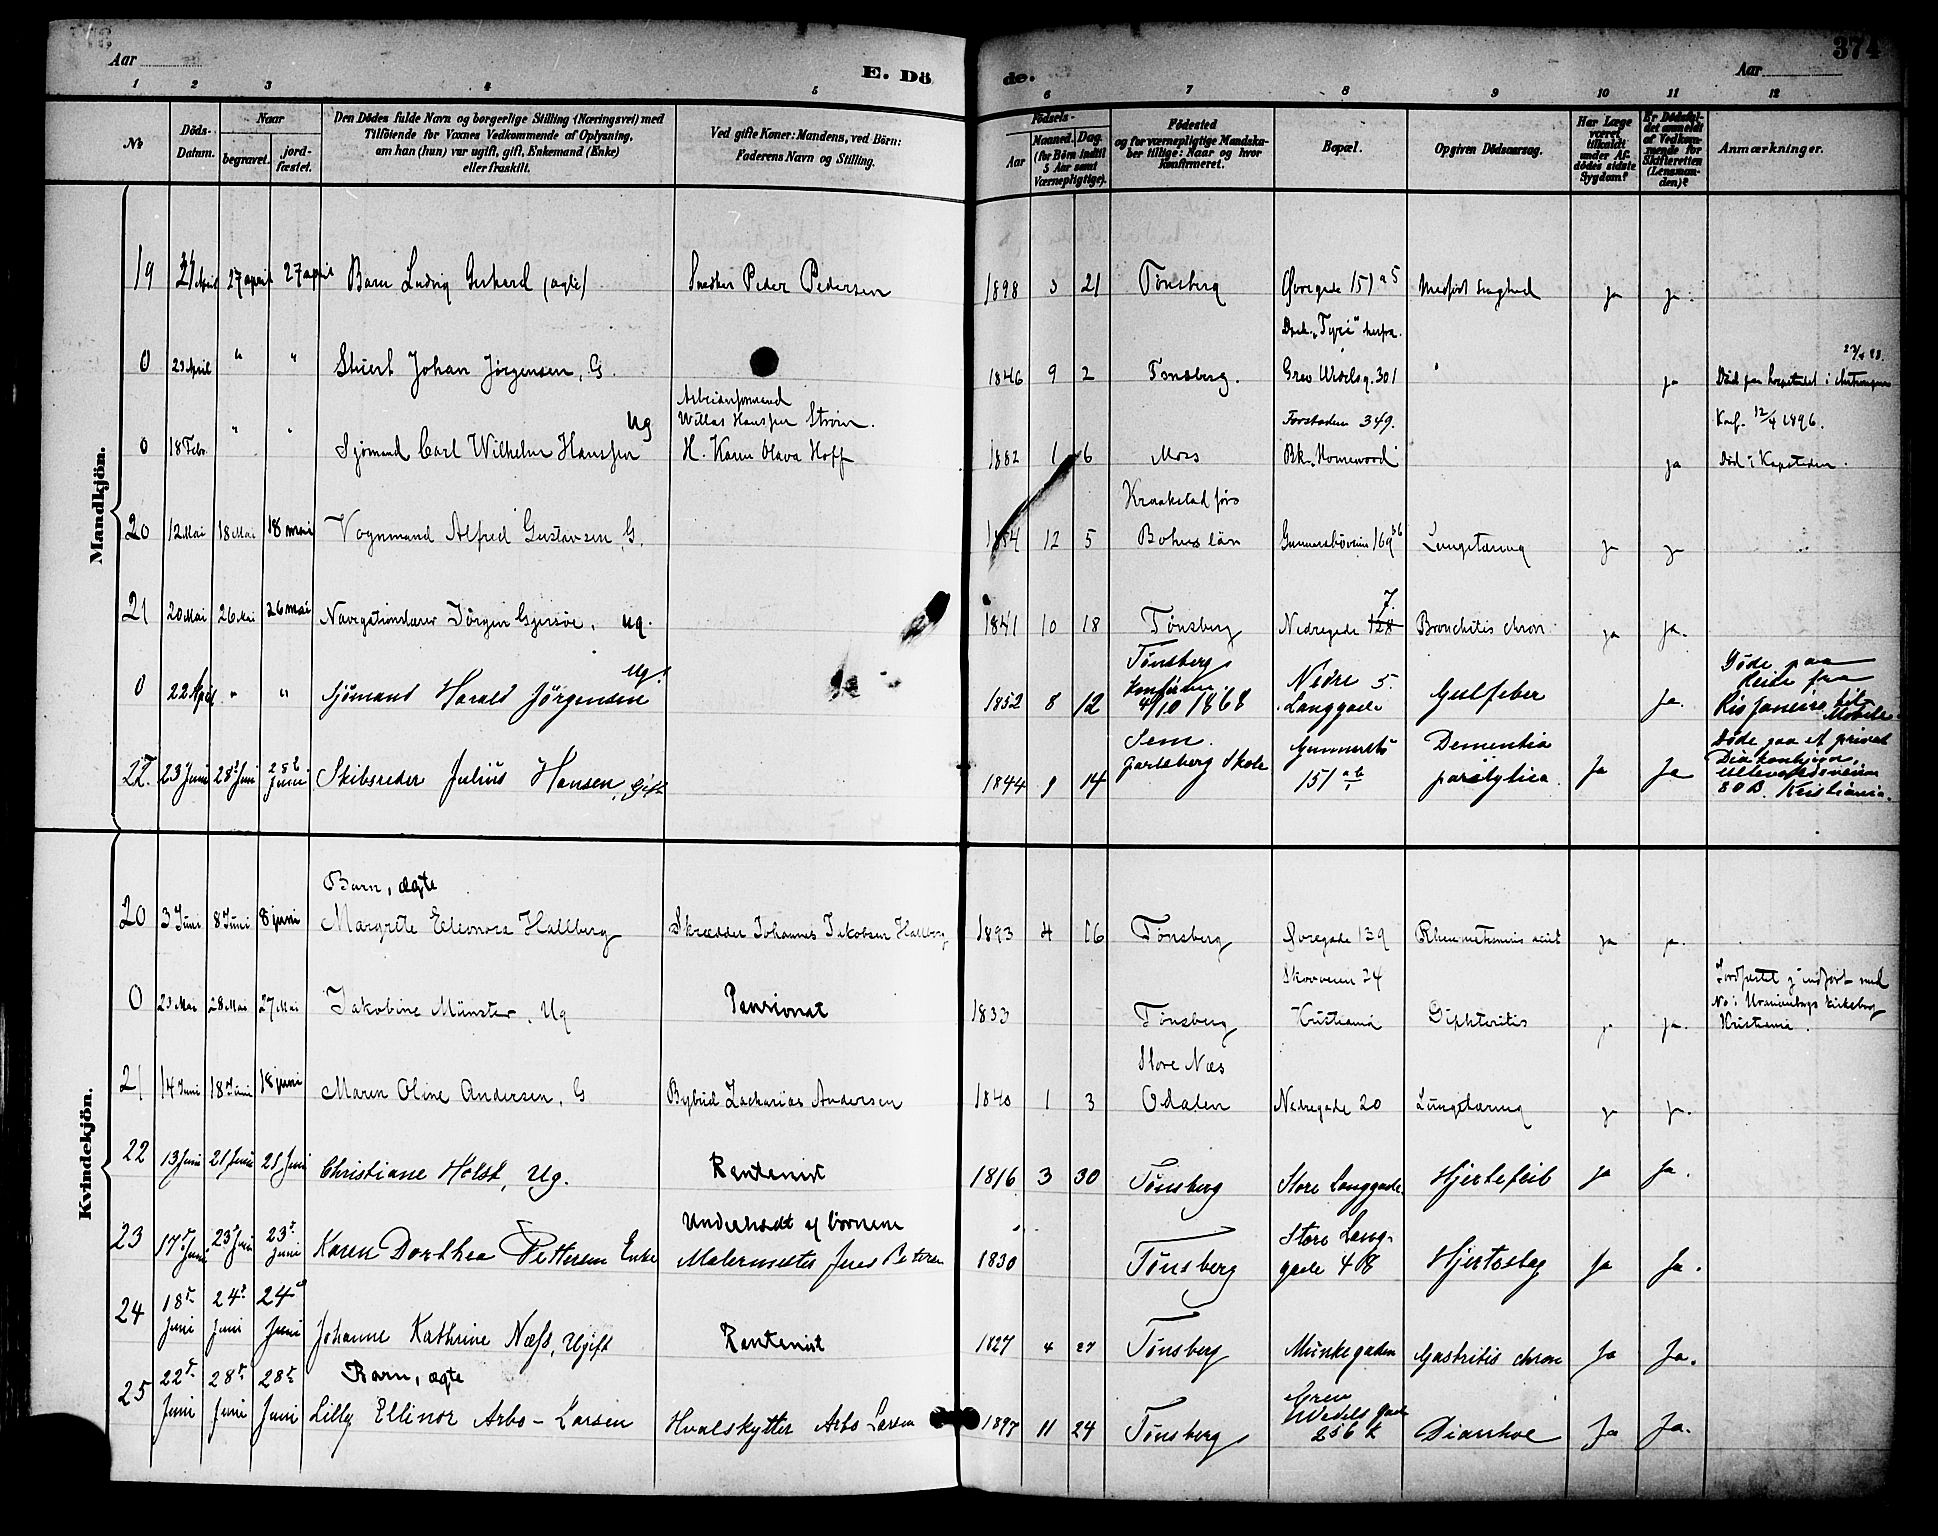 374
Aar
E. Dö
de.
Aar
1 2 3 4 5 6 7 8 9 10 11 12
No
Döds-Datum.
Naar
begravet.
jord-fæstet.
Den Dödes fulde Navn og borgerlige Stilling (Næringsvei) med
Tilföiende for Voxnes Vedkommende af Oplysning,
om han (hun) var ugift, gift, Enkemand (Enke)
eller fraskilt.
Ved gifte Koner: Mandens, ved Börn:
Faderens Navn og Stilling.
Födsels-
Aar
Maaned. Dag.
(for Börn indtil
5 Aar samt
Værnepligtige).
Födested
og for værnepligtige Mandska-
ber tillige: Naar og hvor
konfirmeret.
Bopæl.
Opgiven Dödsaarsag.
Har Læge
været
tilkaldt
under Af-
dödes sidste
Sygdom?
Er Dödsfal-
det anmeldt
af Vedkom-
mende for
Skifteretten
(Lensman-
den)?
Anmærkninger.
Mandkjön.
19 April 27 april 27 april Barn Ludvig Gerhard (ægte) Snedker Peder Pedersen 1898 3 21 Tönsberg Övregade 151 a 5 Medfödt Svaghed ja ja.
Dsk. "Tyri" herfra.
0 23 April " " Stuert Johan Jörgensen, G. 1846 9 2 Tönsberg. Grev Wedelsg. 301 " ja Död paa hospitalet i
Arbeiderformand
Ug Willas Hanssen Ström. Forstaden 349. Konf. 12/4 1896.
0 18 Febr. " " Sjömand Carl Wilhelm Hanssen H. Karen Olava Hoff 1882 1 6 Moss Bk. "Homewood" ja Död i Kapstaden.
Kraakstad
20 12 Mai 18 Mai 18 mai Vognmand Alfred Gustavsen, G. 1854 12 5 Bohus län 169 Lungetæring ja ja
7.
21 20 Mai 26 Mai 26 mai Navigationslærer Jörgen Gjersöe, ug. 1841 10 18 Tönsberg Nedregade 128 Bronchitis chron. ja ja.
0 22 April " " Sjömand Harald Jörgensen Ug. 1852 8 12 Tönsberg 4/10 1868 Nedre 5. Langgade Gulfeber ja. Döde paa Reise fra Rio Janeiro til Mobile.
22. 23 Juni 28 Juni 28 Juni Skibsreder Julius Hansen, Gift 1844 9 14 Sem. Jarlsberg Skole 151 Dementia paralytica. Ja Ja Döde paa et privat Ullevoldsveien 80 B. Kristiania.
Kvindekjön.
Barn, ægte
20 3 Juni 8 Juni 8 juni Margrete Eleonora Hallberg Skrædder Johannes Jakobsen Hallberg 1893 4 16 Tönsberg 139 Rheumatismus acut ja ja.
Skovveien 34
0 23 Mai 28 Mai 27 Mai Jakobine Münster, Ug Pensionat 1833 Tönsberg Kristiania Diphteritis ja ja. Jordfæstet indfört med No i Uranienborgs kirkebog Kristiania.
Store Næs
21 14 Juni 18 Juni 18 juni Maren Oline Andersen, G Bybud Zacharias Andersen 1840 1 3 Odalen Nedregade 20 Lungetæring ja ja.
22 13 Juni 21 Juni 21 Juni Christiane Holst, Ug. Rentenist 1816 3 30 Tönsberg Store Langgade. Hjertefeil ja ja.
Underholdt af Börnene
23 17 Juni 23 Juni 23 Juni Karen Dorthea Pettersen Enke Malermester Jens Petersen 1830 Tönsberg Store Lang-gade 48 Hjerteslag Ja Ja.
24 18 Juni 24 Juni 24 Juni Johanne Kathrine Næss, Ugift Rentenist 1827 4 27 Tönsberg Munkegaden Gastritis chron Ja Ja.
Barn, ægte
25 22 Juni 28 Juni 28 Juni Lilly Ellinor Arbo-Larsen Hvalskytter Arbo Larsen 1897 11 24 Tönsberg Grev Wedels gade 256 k Diarrhoe Ja Ja.